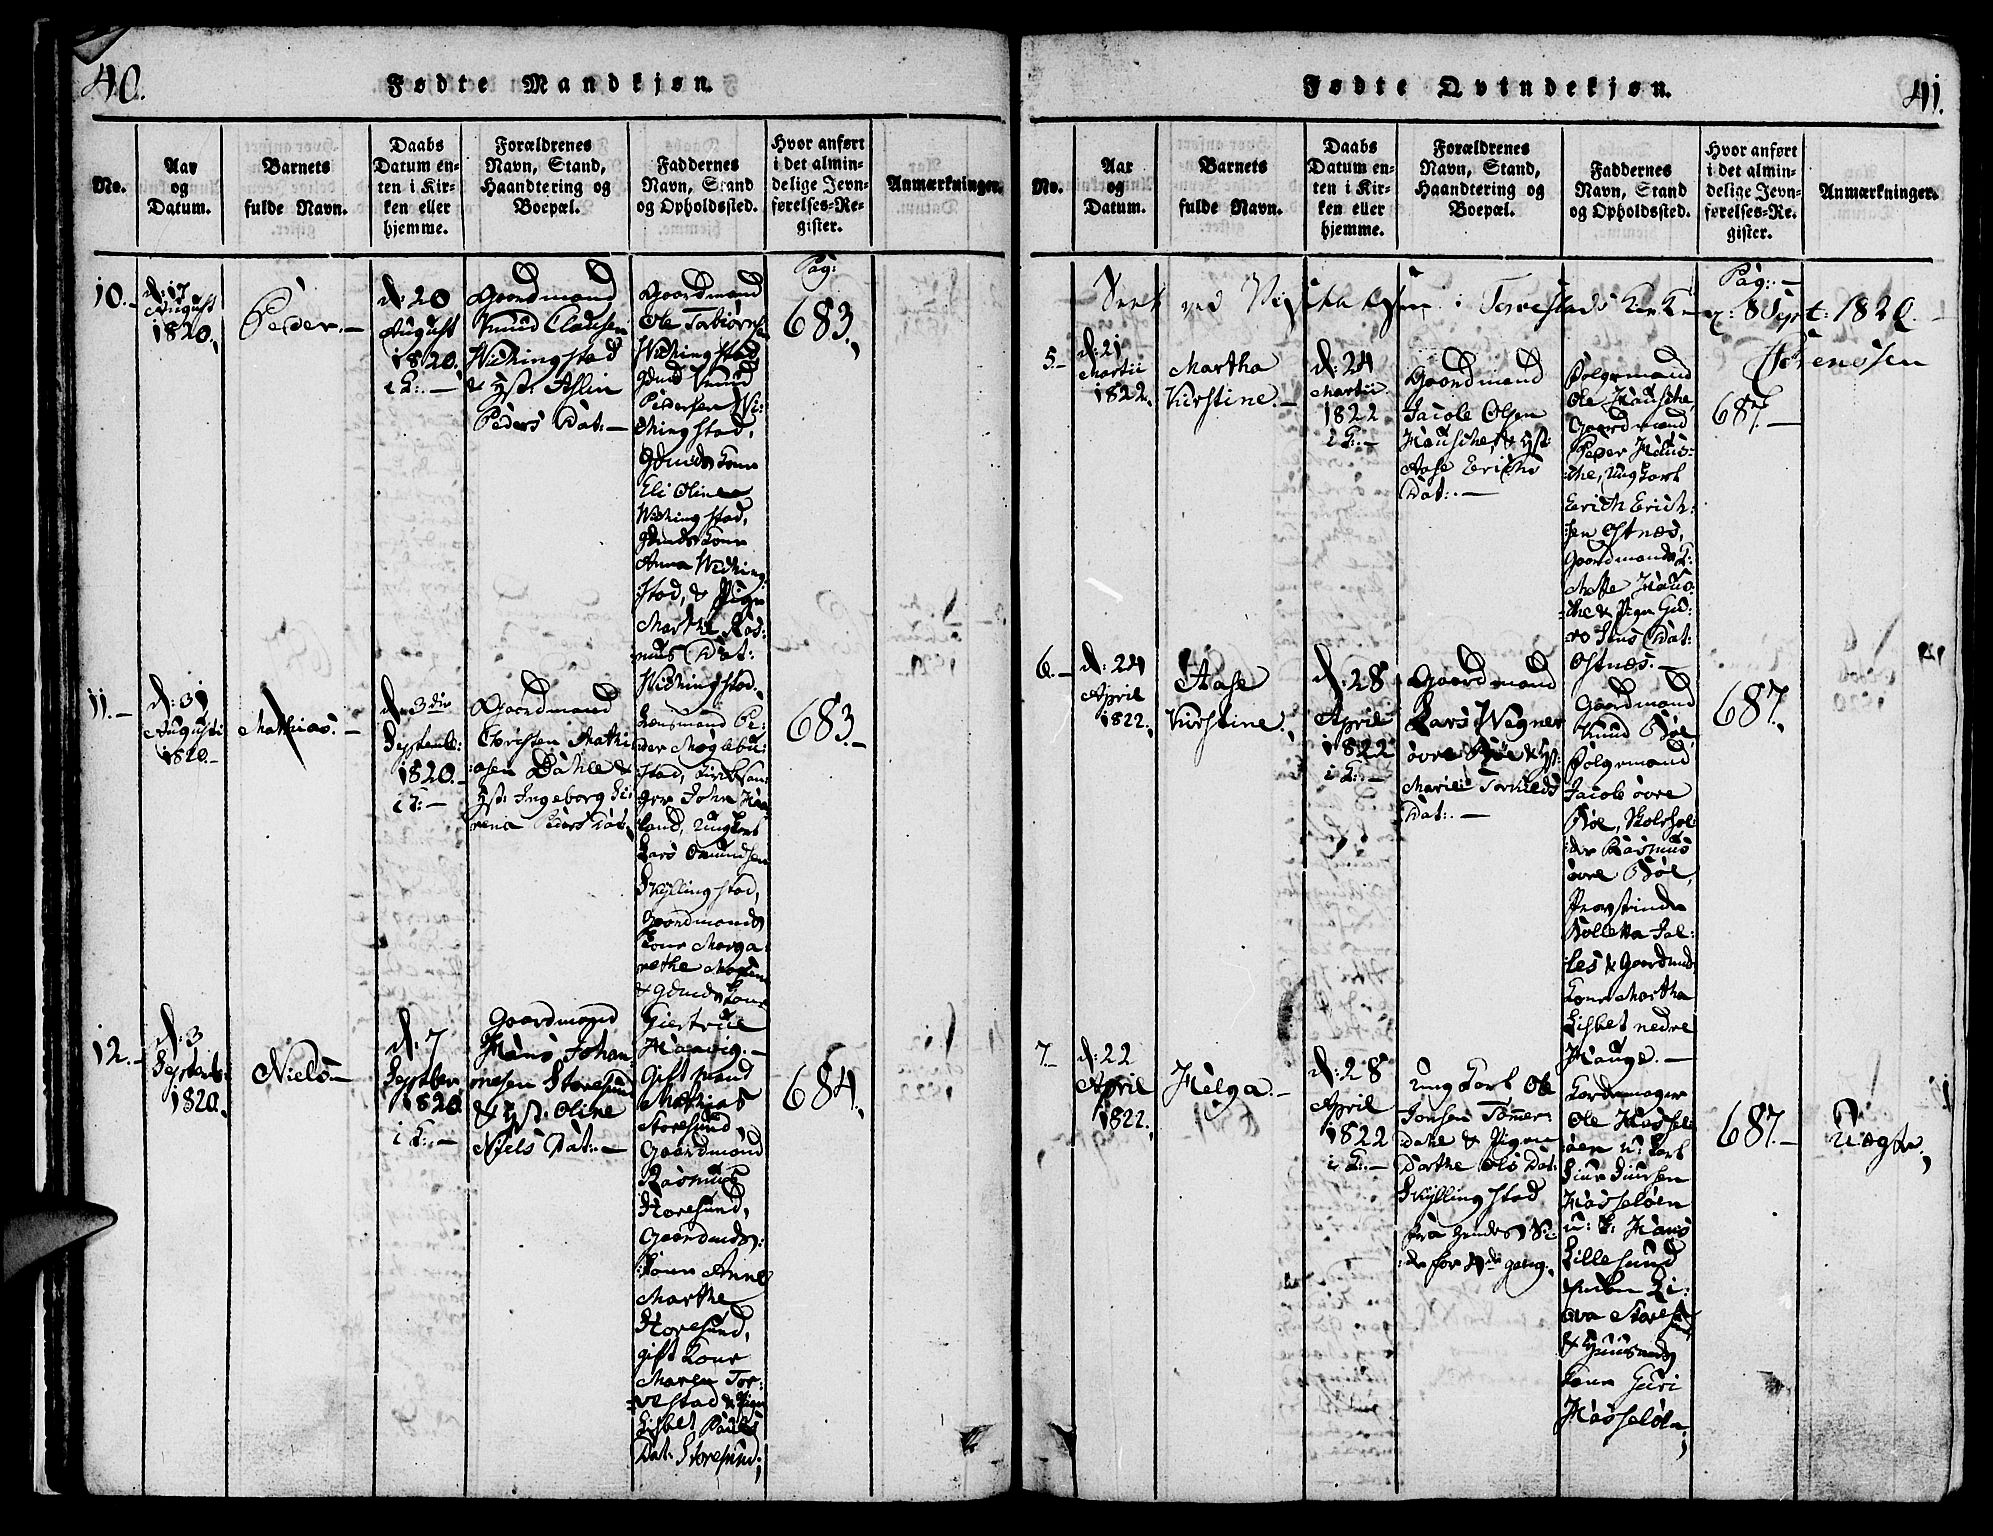 40.
Fødte Mandkjøn.
No.
Aar
og
Datum.
Barnets
fulde Navn.
Daabs
Datum en-
ten i Kir-
ken eller
hjemme.
Forældrenes
Navn, Stand,
Haandtering og
Boepæl.
Faddernes
Navn, Stand
og Opholdssted.
Hvor anført
i det almin-
delige Jevn-
førelses-Re-
gister.
Anmærkninger.
10.-
d: 17
August
1820.
Peder.-
d: 20
August
1820.
i K:-
Gaardmand
Knud Clausen
Wichingstad
& Hst:
Peders Dat:-
Gaardmand
Ole Torbiørnsen
Wichingstad
Gmd Knud
Pedersen Wi-
chingstad,
Gmds Kone
Eli Oline
Wichingstad,
Gmds Kone
Anna Wiching-
stad, & Pige
Marthe Ras-
mus Dat:
Wichingstad.
Pag:
683.
11.-
d: 31
Augusti
1820.-
Mathias.-
d: 3die
Septemb:
1820.-
i K:-
Gaardmand
Christen Mathi-
asen Dahle &
Hst: Ingeborg Se-
rena Peders Dat.
Lensmand Pe-
der Møglebu-
stad, Kirkesan-
ger John Haa-
land, Ungkarl
Lars Omundsen
Skyllingstad,
Gaardmands
Kone Marga-
rethe
& Gmds Kone
Giertrue
683.-
12.-
d: 3
Septemb:
1820.
Niels-
d. 7
September
1820
i K:-
Gaardmand
Hans Johan-
nesen Storesund
& Hst. Oline
Niels Dat:-
Gift Mand
Mathias
Storesund,
Gaardmand
Rasmus
Storesund,
Gaardmds:
Kone Anne
Marthe
Storesund,
gift Kone
Maren Tor-
vestad & Pige
Lisbet Pauls
Dat: Storesund.
684.
41.
Fødte Qvindekjøn.
No.
Aar
og
Datum.
Barnets
fulde Navn.
Daabs
Datum en-
ten i Kir-
ken eller
hjemme.
Forældrenes
Navn, Stand,
Haandtering og
Boepæl.
Faddernes
Navn, Stand
og Opholdssted.
Hvor anført
i det almin-
delige Jevn-
førelses-Re-
gister.
Anmærkninger.
Seet ved Visitatsen i Torvestads Kirke d: 8 Sept: 1820.-
Sørenssen
5.-
d: 21
Martii
1822.
Martha
Kirstine.-
d: 24
Martii
1822
i K:-
Gaardmand
Jacob Olsen
Hauske, & Hst:
Aase Erichs
Dat:-
Bolgemand
Ole Hauske,
Gaardmand
Peder Haus-
ke, Ungkarl
Erich Erich-
sen Østnæs,
Gaardmands K:
Mette Haus-
ke & Pige Gu-
ro Jens Dat:
Østnæs.-
Pag:-
687.-
6.-
d: 24
April
1822.
Aase
Kirstine.
d: 28
April
1822
i K:-
Gaardmand
Lars Wegner
øvre Bøe & Hst:
Marie Torkilds
Dat:-
Gaardmand
Knud Bøe,
Bolgemand
Jacob øvre
Bøe, Skolehol-
der Rasmus
øvre Bøe,
Provstinde
Bolletta Sal-
& Gaardmds
Kone Martha
Lisbet nedre
Hauge.-
687.-
7.-
d: 22
April
1822.
Helga.-
d: 28
April
1822
i K:-
Ungkarl Ole
Jonsen Tømer-
dahl & Pigen
Dorthe Ols Dat:
Skyllingstad
fra hendes Si-
de for 4de gang.
Ole Hassel-
øen u: Karl
Siur Siursen
Hasseløen
u: K. Hans
Lillesund
Enken Li-
va Storesund
& Huusmds
Kone Guri
Hasseløen,
687.-
Uægte.